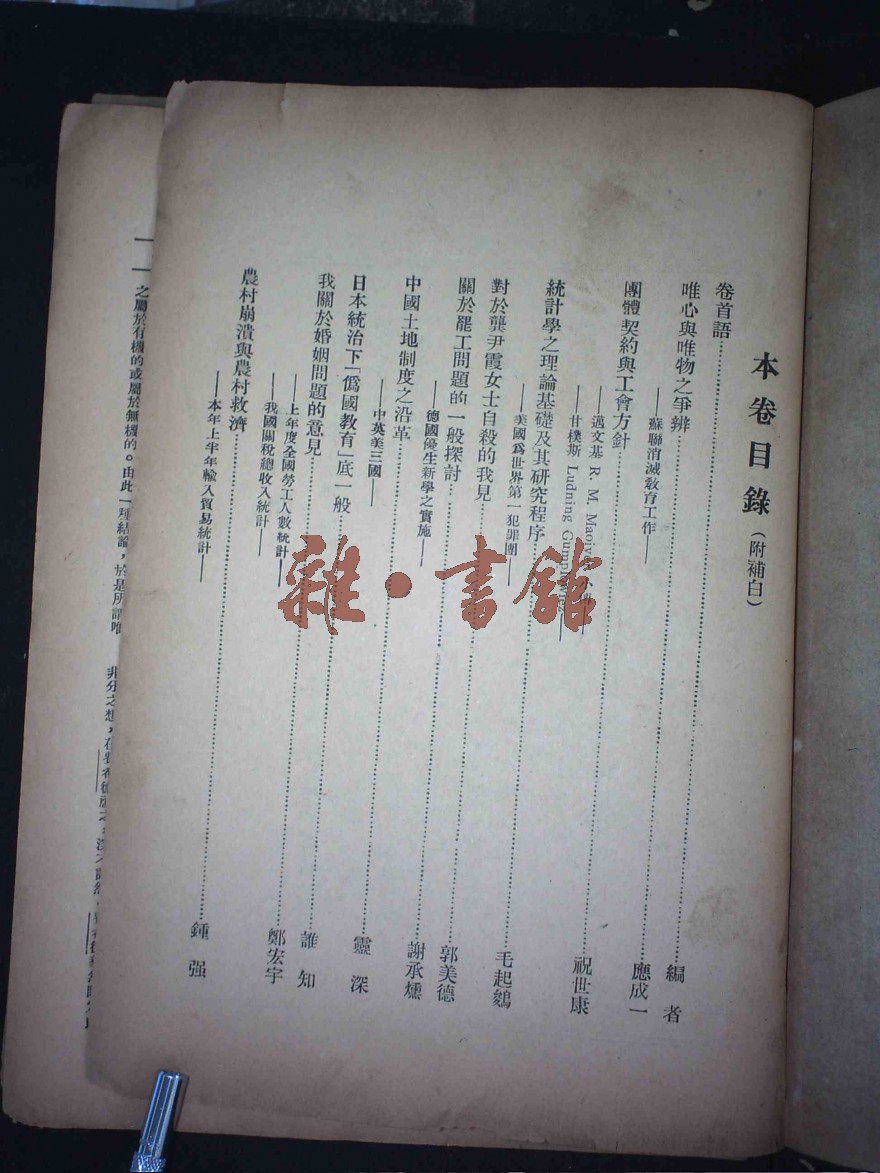 本卷目錄（附補白）
卷首語……編者
唯心與唯物之爭辨……應成一
——蘇聯消滅敎育工作——
團體契約與工會方針……祝世康
——邁文基 R. M.
——甘樸斯 Ludning
統計學之理論基礎及其研究程序……毛起鵕
——美國爲世界第一犯罪團——
對於龔尹霞女士自殺的我見……郭美德
關於罷工問題的一般探討……謝承燻
——德國優生新學之實施——
中國土地制度之沿革……靈深
——中英美三國——
日本統治下「僞國敎育」底一般……誰知
我關於婚姻問題的意見……鄭宏宇
——上年度全國勞工人數統計——
——我國關稅總收入統計——
農村崩潰與農村救濟……鍾强
——本年上半年輸入貿易統計——
之屬於有機的或屬於無機的。由此一種結論，於是所謂唯
非分之想，在
雜·書館